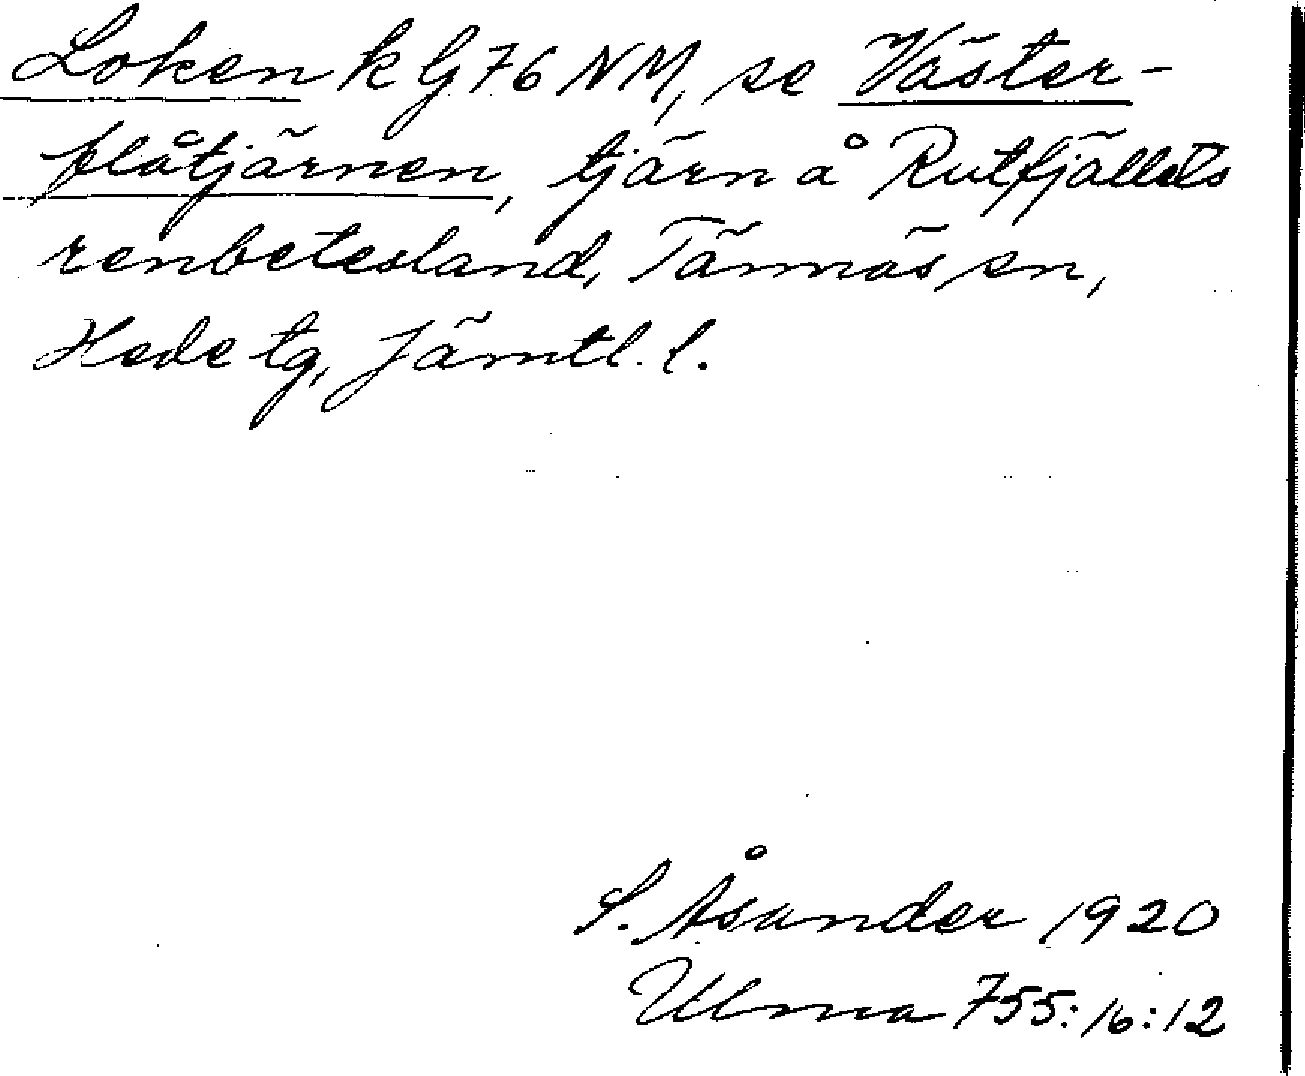 Loken k G 76 NM, se Väster-
flåtjärnen, tjärn å Rutfjällets
renbetesland, Tännäs sn,
Hede tg, Jämtl. l.
S. Åsander 1920
Ulma 755:16:12